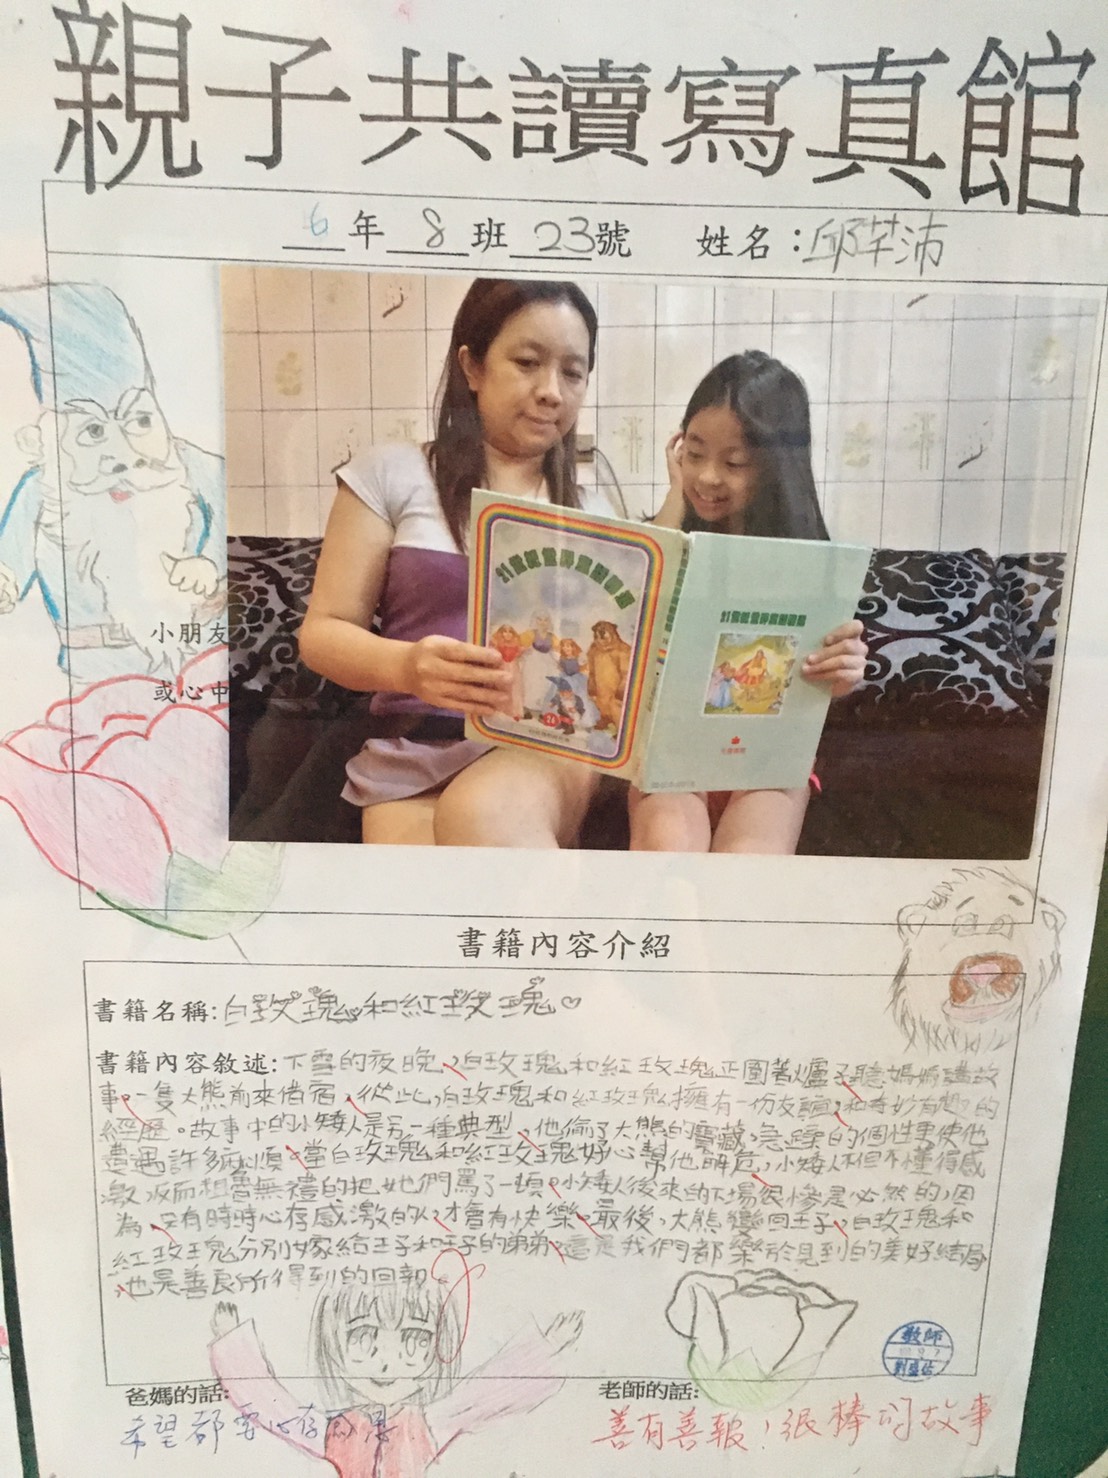 親子共讀寫真館
6年8班23號 姓名:邱芊沛
小朋友
或心中
21世紀世界童話精選
24
書籍內容介紹
書籍名稱:白玫瑰和紅玫瑰
書籍內容敘述:下雪的夜晚,白玫瑰和紅玫瑰正圍著爐子聽媽媽講故
事。一隻大熊前來借宿,從此,白玫瑰和紅玫瑰擁有一份友誼,和奇妙有趣的
經歷。故事中的小矮人是另一種典型,他偷了大熊的寶藏,急躁的個性更使他
遭遇許多麻煩。當白玫瑰和紅玫瑰好心幫他解危,小矮人不但不懂得感
激,反而粗魯無禮的把她們罵了一頓。小矮人後來的下場很慘是必然的,因
為,只有時時心存感激的人,才會有快樂。最後,大熊變回王子,白玫瑰和
紅玫瑰分別嫁給王子和王子的弟弟,這是我們都樂於見到的美好結局
,也是善良所得到的回報。
教師
爸媽的話: 老師的話:
希望都要心存感恩 善有善報!很棒的故事